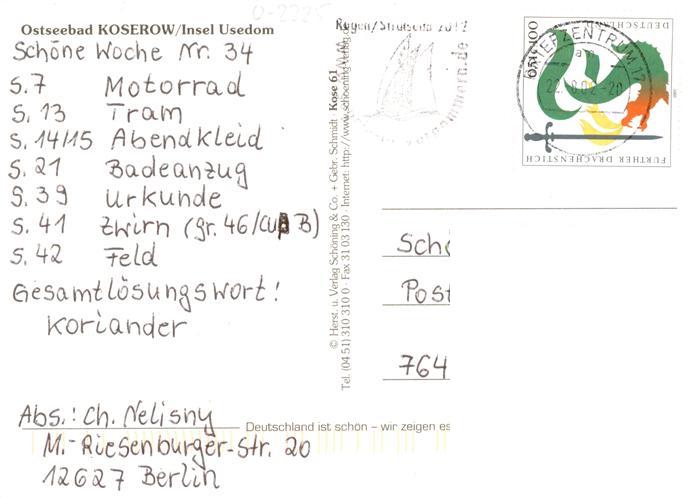 Ostseebad KOSEROW/Insel Usedom
Schöne Woche Nr. 34
S. 7 Motorrad
S. 13 Tram
S. 14/15 Abendkleid
S. 21 Badeanzug
S. 39 Urkunde
S. 41 Zwirn (Gr. 46/Cup B)
S. 42 Feld
Gesamtlösungswort!
Koriander
Abs.: Ch. Nelisny
M.-Riesenburger-Str. 20
12627 Berlin
© Herst. u. Verlag Schöning & Co. + Gebr. Schmidt Kose 61
Tel. (04 51) 310 310 0 · Fax 31 03 130 · Internet: http://www.schoening-verlag.de
Deutschland ist schön – wir zeigen es
Rügen/Stralsund 2012
vorpommern.de
BRIEFZENTRUM 12
DEUTSCHLAND
FURTHER DRACHENSTICH
Sch
Post
764